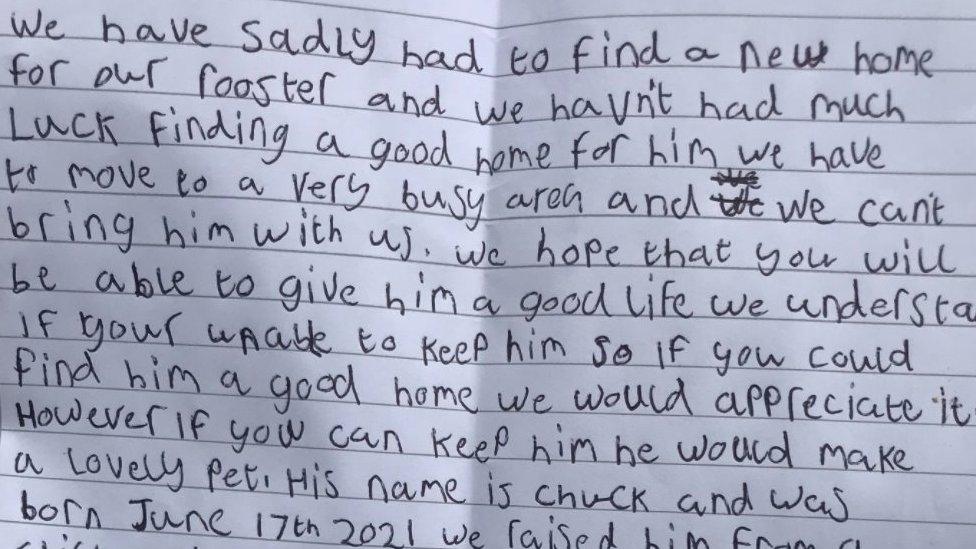 We have sadly had to find a new home
for our rooster and we havn't had much
Luck finding a good home for him we have
to move to a very busy area and we can't
bring him with us. we hope that you will
be able to give him a good life we understa
if your unable to keep him so if you could
find him a good home we would appreciate it
However if you can keep him he would make
a lovely pet. His name is chuck and was
born June 17th 2021 we raised him from a